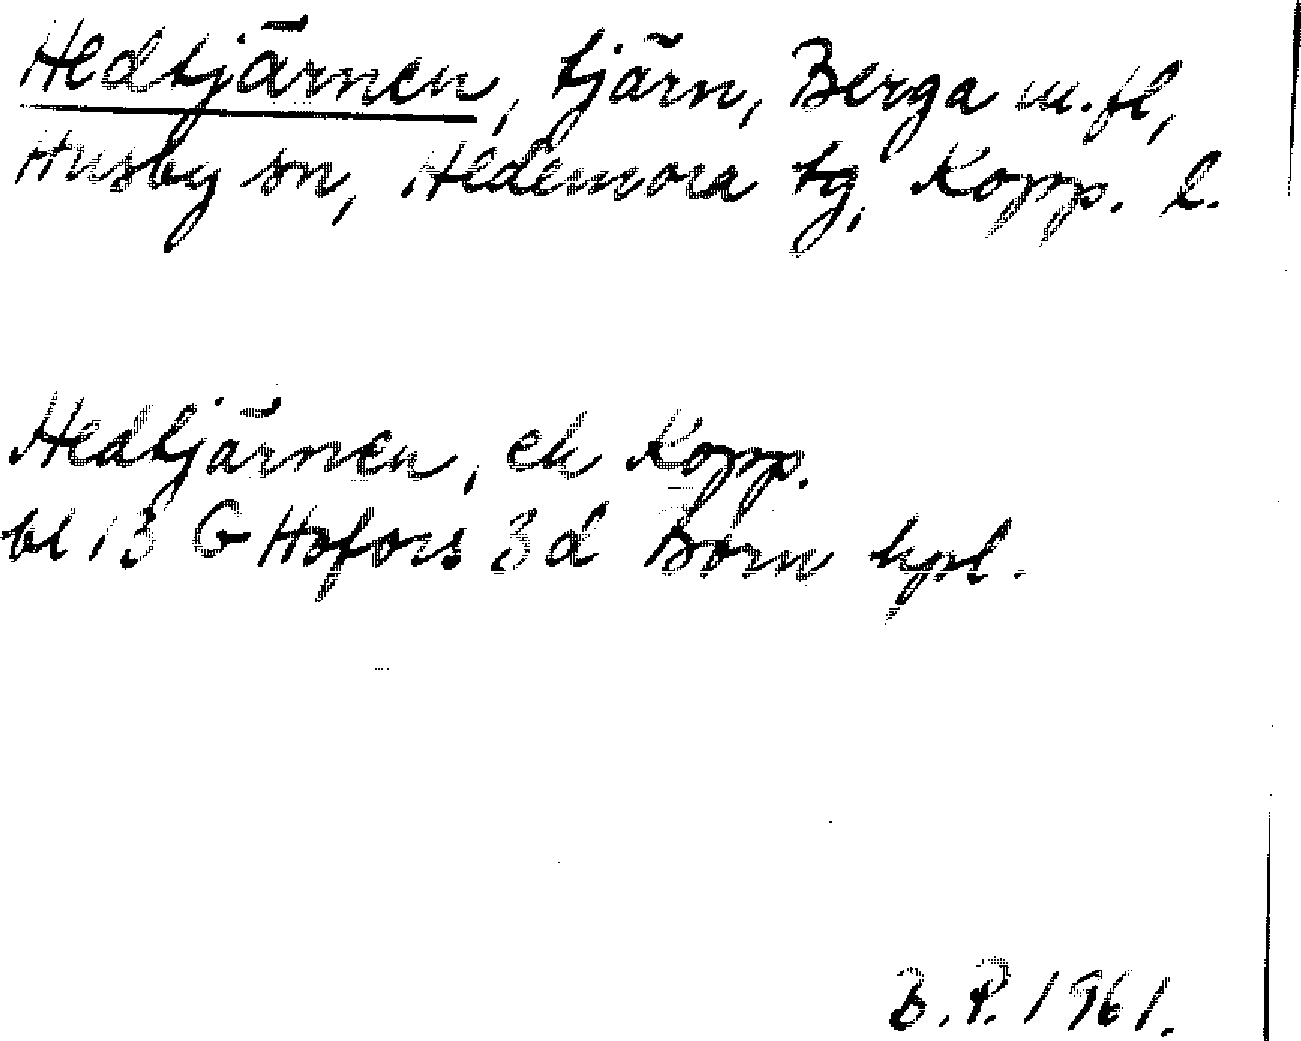 Hedtjärnen, tjärn, Berga m.fl,
Husby sn, Hedemora tg, Kopp. l.
Hedtjärnen, ek Kopp.
bl 13 G Hofors 3 d Born kpl.
B. P. 1961.